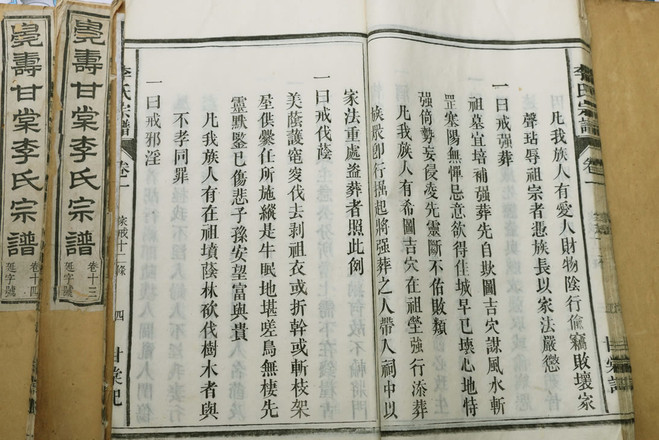 凡我族人有愛人財物陰行偷竊敗壞家
聲玷辱祖宗者憑族長以家法嚴懲
一曰戒强葬
祖墓宜培補强葬先自欺圖吉穴謀風水斬
罡塞陽無憚忌意欲得佳城早已壞心地特
强倚勢妄侵凌先靈斷不佑敗類
凡我族人有希圖吉穴在祖塋強行添葬
族衆卽行掘起將强葬之人帶入祠中以
家法重處盜葬者照此例
一曰戒伐蔭
美蔭護窀穸伐去剥祖衣或折幹或斬枝架
屋供爨任所施縱是牛眠地堪嗟鳥無棲先
靈默鑒已傷悲子孫安望富與貴
凡我族人有在祖墳蔭林砍伐樹木者與
不孝同罪
一曰戒邪淫
李氏宗譜
卷一
條戒十二條
四
甘棠
李氏宗譜
卷一
亮壽甘棠李氏宗譜
卷十三
延字號
亮壽甘棠李氏宗譜
卷十四
延字號